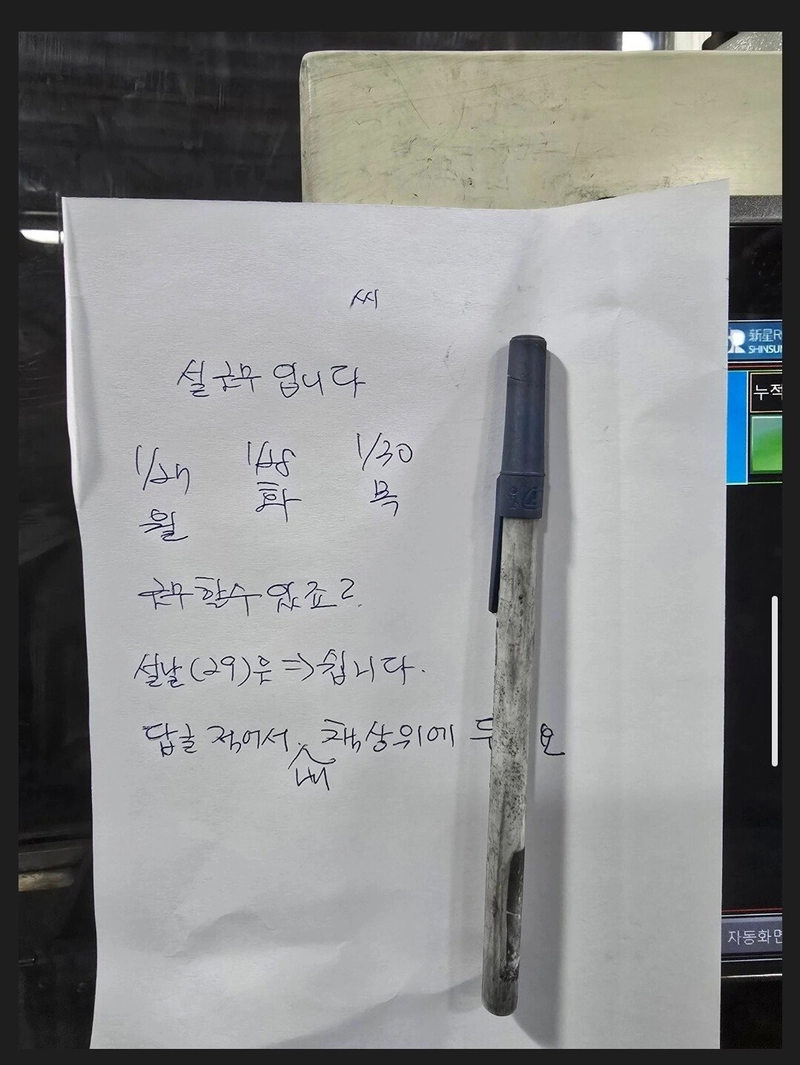 씨
설 근무 입니다
1/27 1/28 1/30
월 화 목
근무 할수 있죠?
설날(29)은 => 쉽니다.
답글 적어서 내 책상위에
新星R
SHINSUN
누적
자동화면